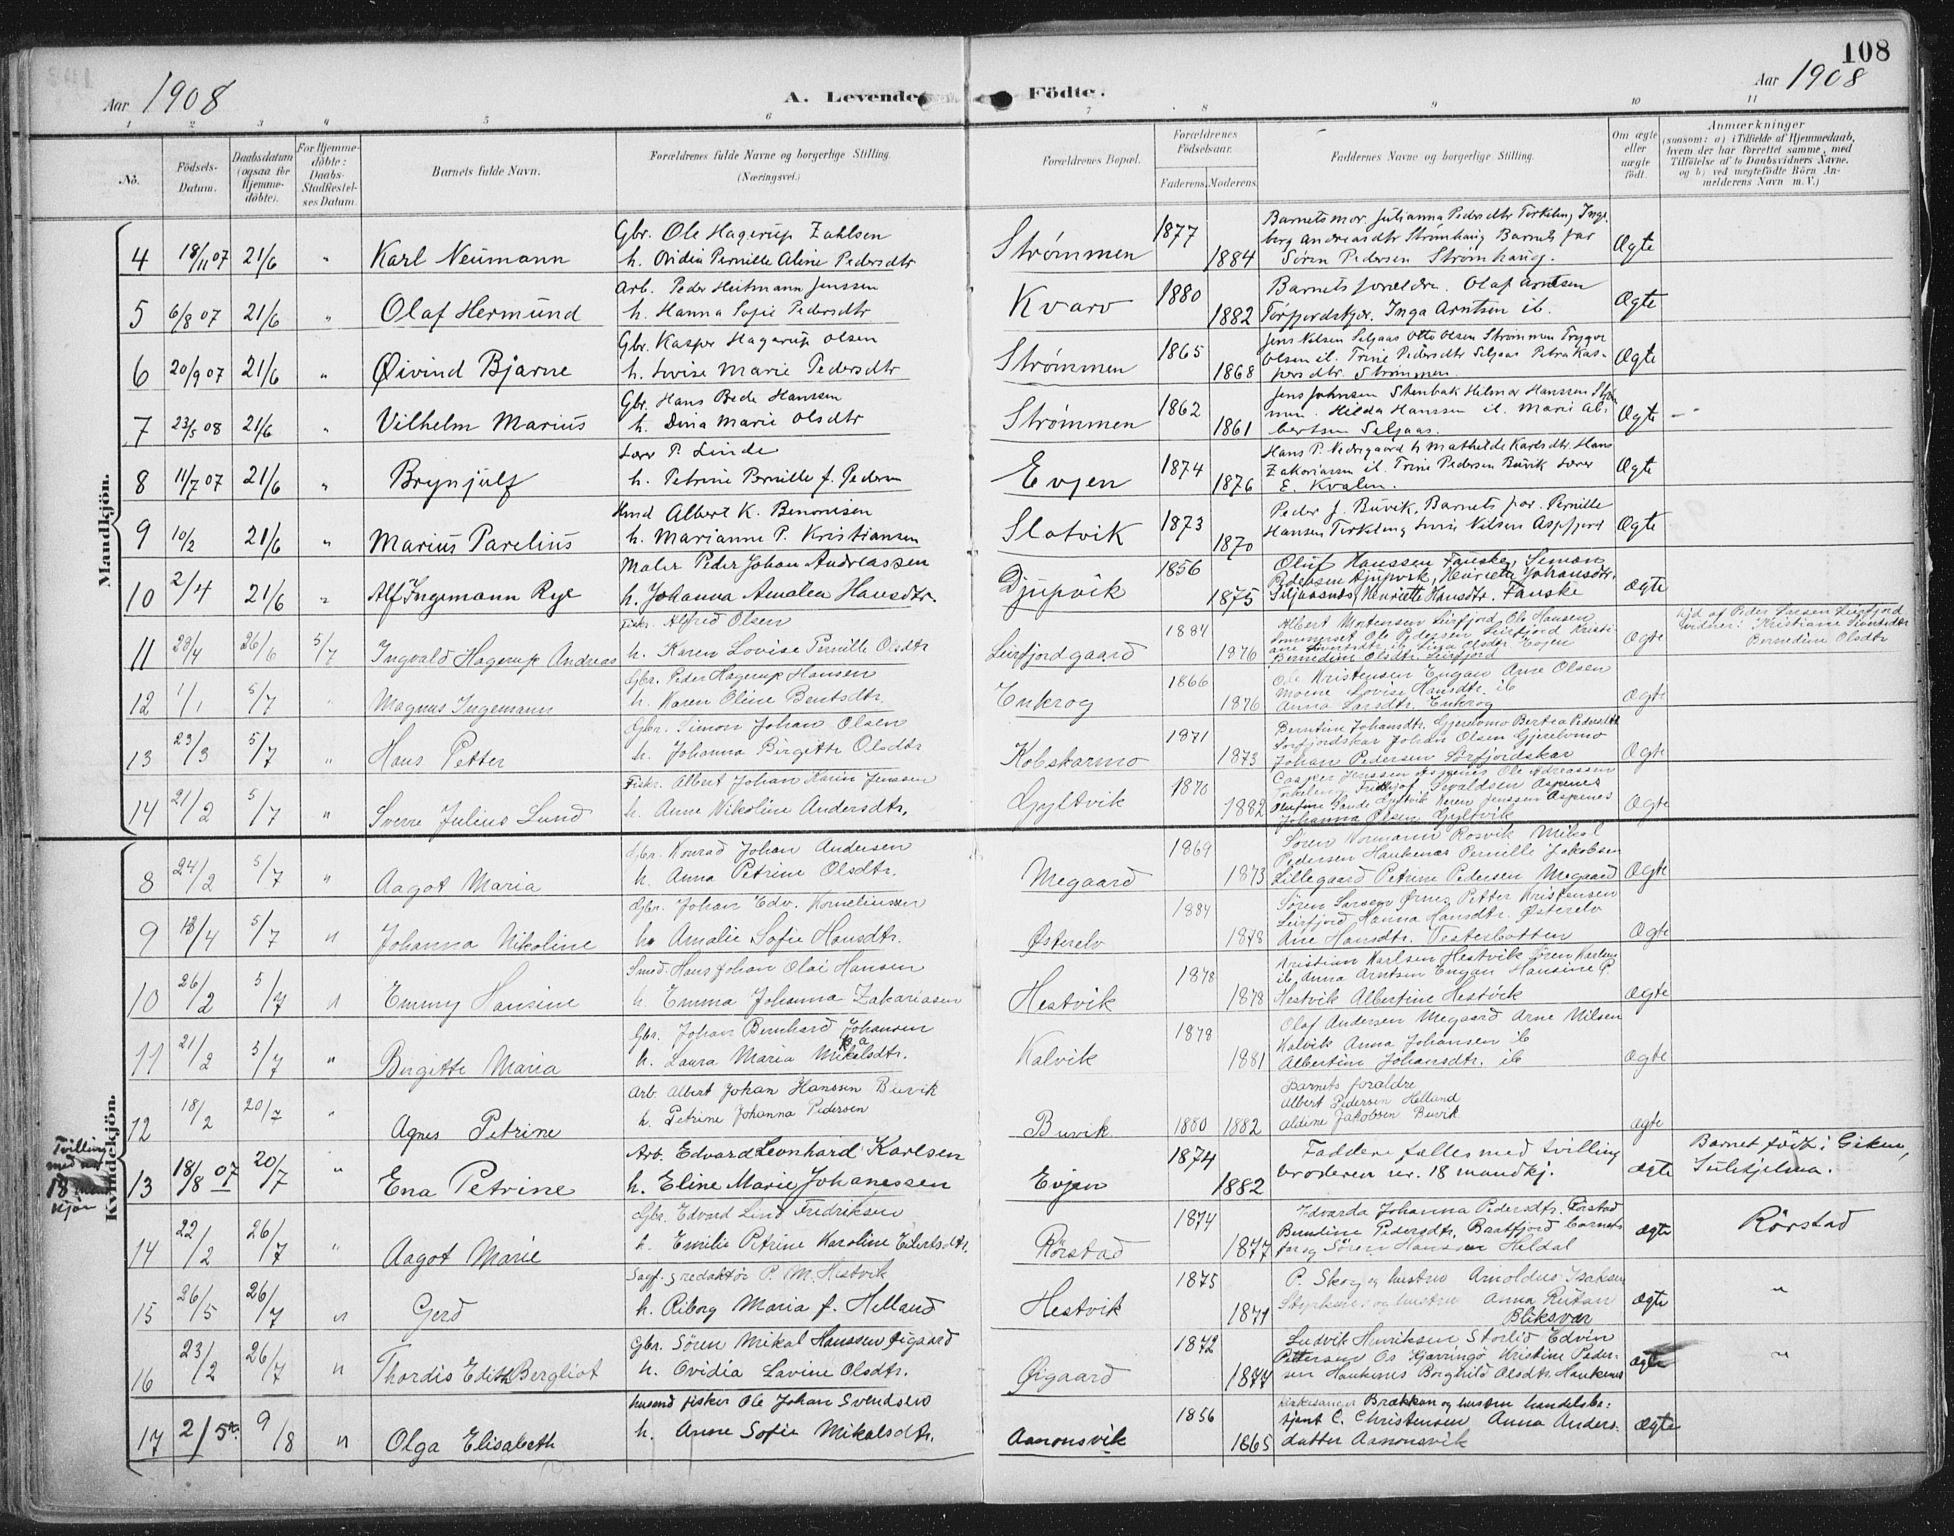 108
Aar 1908
A. Levende Födte.
Aar 1908
1 2 3 4 5 6 7 8 9 10 11
No.
Födsels-Datum.
Daabsdatum (ogsaa for Hjemme-döbte).
For Hjemme-döbte: Daabs-Stadfæstel-ses Datum.
Barnets fulde Navn.
Forældrenes fulde Navne og borgerlige Stilling.
(Næringsvei.)
Forældrenes Bopæl.
Forældrenes Födselsaar.
Faderens. Moderens.
Faddernes Navne og borgerlige Stilling.
Om ægte eller uægte födt.
Anmærkninger
(saasom: a) i Tilfælde af Hjemmedaab,
hvem der har forrettet samme, med
Tilföielse af to Daabsvidners Navne,
og b) ved uægtefödte Börn An-
melderens Navn m. V.)
Mandkjön.
4 18/11 07 21/6 " Karl Neumann
Gbr. Ole Hagerup Zahlsen
h. Ovidia Pernille Alene Pedersdtr
Strømmen 1877 1884
Barnets mor. Julianna Pedersdtr Torkling, Inge-
berg Andreasdtr Strømhaug Barnets far
Sören Pedersen Strømhaug.
Ægte
5 6/8 07 21/6 " Olaf Hermund
Arb. Peder Heitmann Jenssen
h. Hanna Sofie Pedersdtr
Kvarv 1880 1882
Barnets forældre. Olaf Arntsen
Torfjordskjar. Inga Arntsen ib.
Ægte
6 20/9 07 21/6 " Øivind Bjarne
Gbr. Kasper Hagerup Olsen
h. Lovise Marie Pedersdtr
Strømmen 1865 1868
Jens Nilsen Siljaas Otto Olsen Strømmen Trygve
Olsen il. Trine Pedersdtr Siljaas Petra Kas-
persdtr. Strømmen.
Ægte
7 23/5 08 21/6 " Vilhelm Marius
Gbr. Hans Bede Hanssen
h. Dina Marie Olsdtr
Strømmen 1862 1861
Jens Johnsen Stenbak Hilmar Hanssen
men. Hilda Hanssen il. Marie Al-
bertsen Siljaas.
Ægte —
8 11/7 07 21/6 " Brynjulf
Lærer P. Linde
h. Petrine Pernille f. Pedersen
Evjen 1874 1876
Hans P. Nedregaard h Mathilde Karlsdtr. Hans
Zakariassen il. Trine Pedersen Buvik Lærer
E. Kvalen.
Ægte
9 10/2 21/6 " Marius Parelius
Hmd Albert K. Benonisen
h. Marianne P. Kristiansen
Slotvik 1873 1870
Peder J. Buvik, Barnets far. Pernille
Hansen Torkling Nilsen Aspfjord
Ægte
10 2/4 21/6 " Alf Ingemann Rye
Maler Peder Johan Andreassen
h. Johanna Amalea Hansdtr.
Djupvik 1856 1875
Oluf Hanssen Fauske, Simon
Pedersen Djupvik, Henriette Johansdtr.
Siljaasnes, Henriette Hansdtr. Fauske
ægte
11 28/4 26/6 5/7 Ingvald Hagerup Andreas
Fisk. Alfred Olsen
h. Karen Lovise Pernille Olsdtr
Leirfjordgaard 1884 1876
Albert Mortensen Leirfjord Ole Hansen
Sommerset Ole Pedersen Leirfjord Kristi-
ane ib. Olsdtr. Evjen
Berndine Olsdtr. Leirfjord
Ægte
hjd af Peder Larsen Leirfjord
vidner: Kristiane Sivertsdtr
Berndine Olsdtr
12 1/1 5/7 " Magnus Ingemann
Gbr. Peder Hagerup Hansen
h. Karen Oline Bentsdtr.
Enkrog 1866 1876
Ole Kristensen Engan Arne Olsen
Moene Lovise Hansdtr. ib
Anna Larsdtr. Enkrog
Ægte
13 23/3 5/7 " Hans Petter
Gbr. Simon Johan Olsen
h. Johanna Birgitte Olsdtr
Kobskarmo 1871 1873
Berntine Johansdtr. Gjerelvmo Bertea Pedersdtr
Sørfjordskar Johan Olsen Gjerelvmo
Johan Pedersen Sørfjordskar
Ægte
14 21/2 5/7 " Sverre Julius Lund
Fisker. Albert Johan Karin Jenssen
h. Anne Nikoline Andersdtr.
Gyltvik 1870 1882
Casper Jenssen Aspenes Ole Adreassen
Torkelmo Fridthjof Iwaldsen Aspenes
Olufine Sande Gyltvik Karen Jenssen Aspenes
Johanna Olsen Gyltvik
Ægte
Kvindekjön.
8 24/2 5/7 " Aagot Maria
Gbr. Konrad Johan Andersen
h. Anna Petrine Olsdtr.
Megaard 1869 1873
Søren Normann Rosvik Mikal
Pedersen Haukenæs Pernille Jakobsen
Lillegaard Petrine Pedersen Megaard
Ægte
9 18/4 5/7 " Johanna Nikoline
Gbr. Johan Edv. Korneliussen
h. Amalie Sofie Hansdtr.
Østerelv 1884 1878
Søren Larsen Ørnes Petter Kristensen
Leirfjord Hanna Hansdtr. Østerelv
Ane Hansdtr. Vesterbotten
Ægte
10 26/2 5/7 " Emmy Hansine
Smed. Hans Johan Olai Hansen
h. Emma Johanna Zakariasen
Hestvik 1878 1878
Kristian Karlsen Hestvik Søren Karlsen
ib. Anna Arntsen Engan Hansine P
Hestvik Albertine Hestvik
Ægte
11 21/2 5/7 " Birgitte Maria
Gbr. Johan Bernhard Johansen
h. Laura Maria Mikalsdtr.
Kalvik 1878 1881
Olaf Andersen Megaard Arne Nilsen
Kalvik Anna Johansen ib
Albertine Johansdtr. ib
Ægte
12 18/2 20/7 " Agnes Petrine
Arb. Albert Johan Hanssen Buvik
h. Petrine Johanna Pedersen
Buvik 1880 1882
Barnets forældre
Albert Pedersen Helland
Aldine Jakobsen Buvik
ægte
Tvilling
med nr
18 man
kjøn
13 18/8 07 20/7 " Ena Petrine
Arb. Edvard Leonhard Karlsen
h. Eline Marie Johanessen
Evjen 1874 1882
Faddere fælles med tvilling
broderen nr. 18 mandkj.
ægte
Barnet født i Giken,
Sulitjelma.
14 22/2 26/7 " Aagot Marie
Gbr. Edvard Lind Fredriksen
h. Emilie Petrine Karoline Eilertsdtr.
Rörstad 1874 1877
Edvarda Johanna Pedersdtr. Rörstad
Berndine Pedersdtr. Bratfjord Barnets
far og Sören Hanssen Heldal
ægte
Rörstad
15 26/5 26/7 " Gerd
Sagf. & redaktör P. M. Hestvik
h. Riborg Maria f. Helland
Hestvik 1875 1871
P. Skog og hustru Arnoldus Isaksen
og hustru Anna Rutan
Bliksvær
Ægte "
16 23/2 26/7 " Thordis Edith Bergliot
Gbr. Sören Mikal Hanssen Øigaard
h. Ovidia Lavine Olsdtr.
Øigaard 1872 1877
Ludvik Henriksen Storlid Edvin
Pettersen Os Kjerringö Kristine Peder-
sen Haukenes Borghild Olsdtr. Haukenes
ægte "
17 2/5 9/8 " Olga Elisabeth
husmd fisker Ole Johan Svendsen
h. Anne Sofie Mikalsdtr.
Aanonsvik 1856 1865
kirkesanger Brækkan og hustru handelsbe-
tjent C. Christensen Anna Anders-
datter Aanonsvik
Ægte